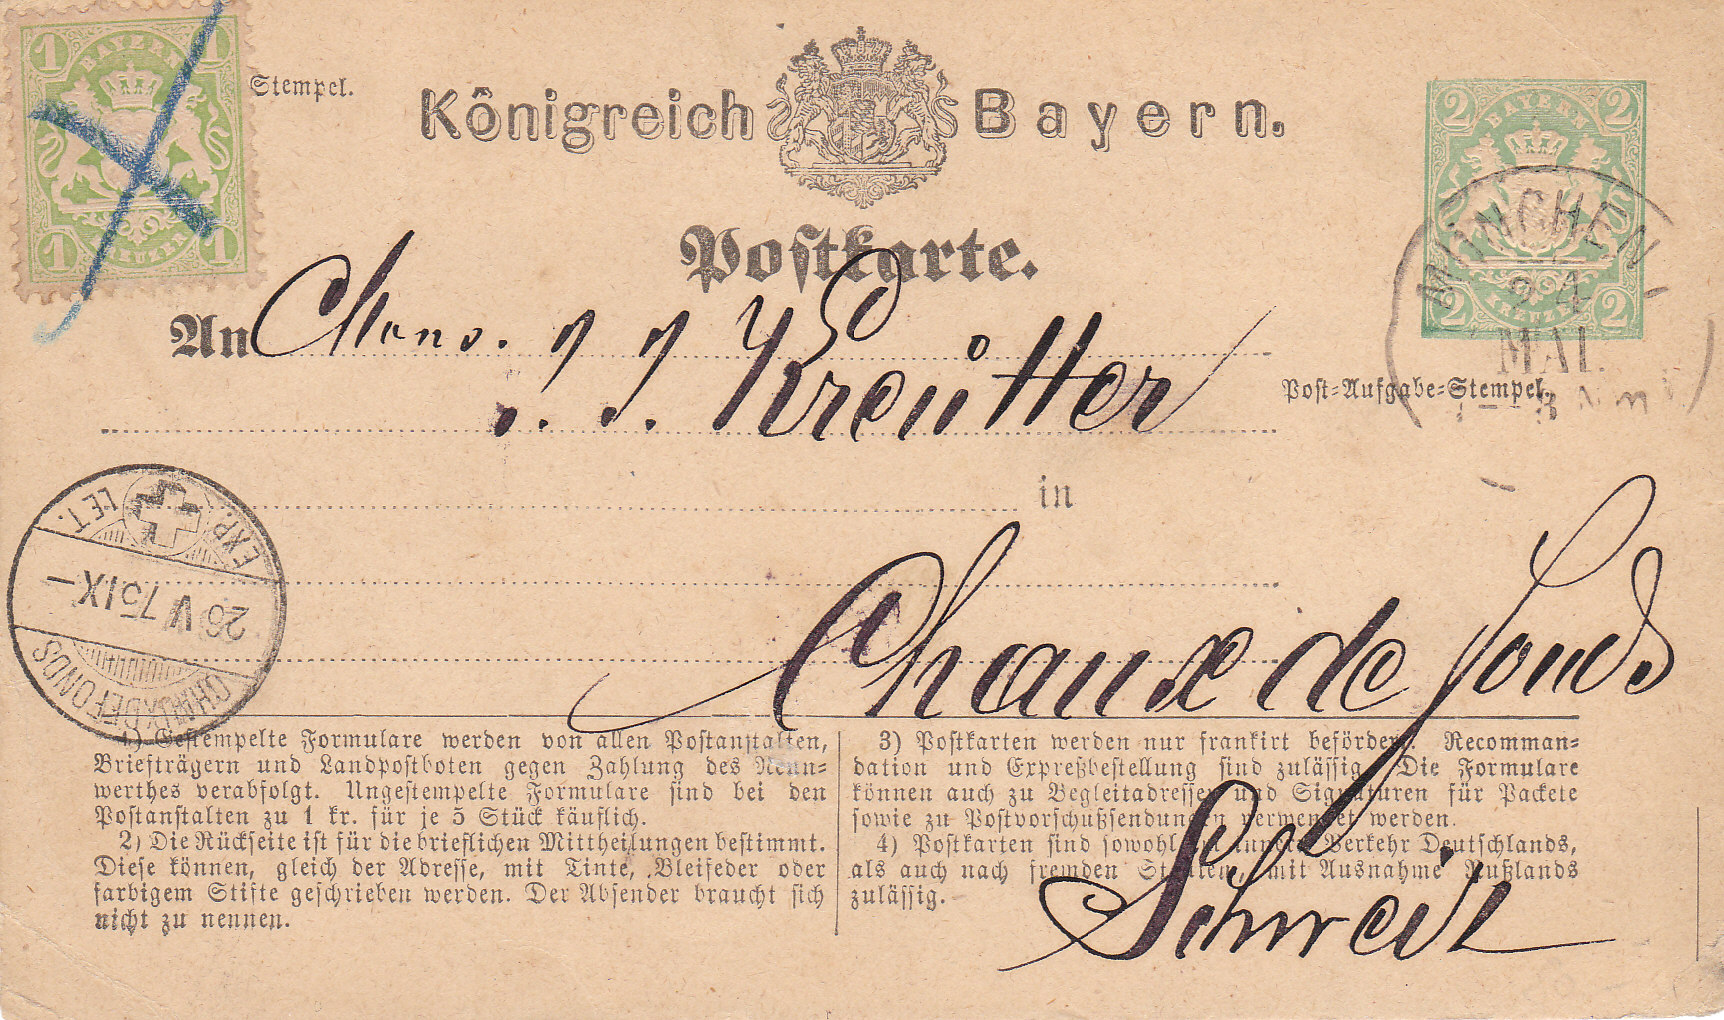 1 1
BAYERN
1 KREUZER 1
Stempel.
Königreich Bayern.
2 2
BAYERN
2 KREUZER 2
MÜNCHEN I
24
MAI.
Postkarte.
An Mons. J. J. Kreütter
Post-Aufgabe-Stempel.
in
EXP. LET.
26 V 75 IX –
CHAUXDEFONDS
Chaux de fonds
Schweiz
1) Gestempelte Formulare werden von allen Postanstalten,
Briefträgern und Landpostboten gegen Zahlung des Nenn-
werthes verabfolgt. Ungestempelte Formulare sind bei den
Postanstalten zu 1 kr. für je 5 Stück käuflich.
2) Die Rückseite ist für die brieflichen Mittheilungen bestimmt.
Diese können, gleich der Adresse, mit Tinte, Bleifeder oder
farbigem Stifte geschrieben werden. Der Absender braucht sich
nicht zu nennen.
3) Postkarten werden nur frankirt befördert. Recomman-
dation und Expreßbestellung sind zulässig. Die Formulare
können auch zu Begleitadressen und Signaturen für Packete
sowie zu Postvorschußsendungen verwendet werden.
4) Postkarten sind sowohl im innern Verkehr Deutschlands,
als auch nach fremden Staaten, mit Ausnahme Rußlands
zulässig.